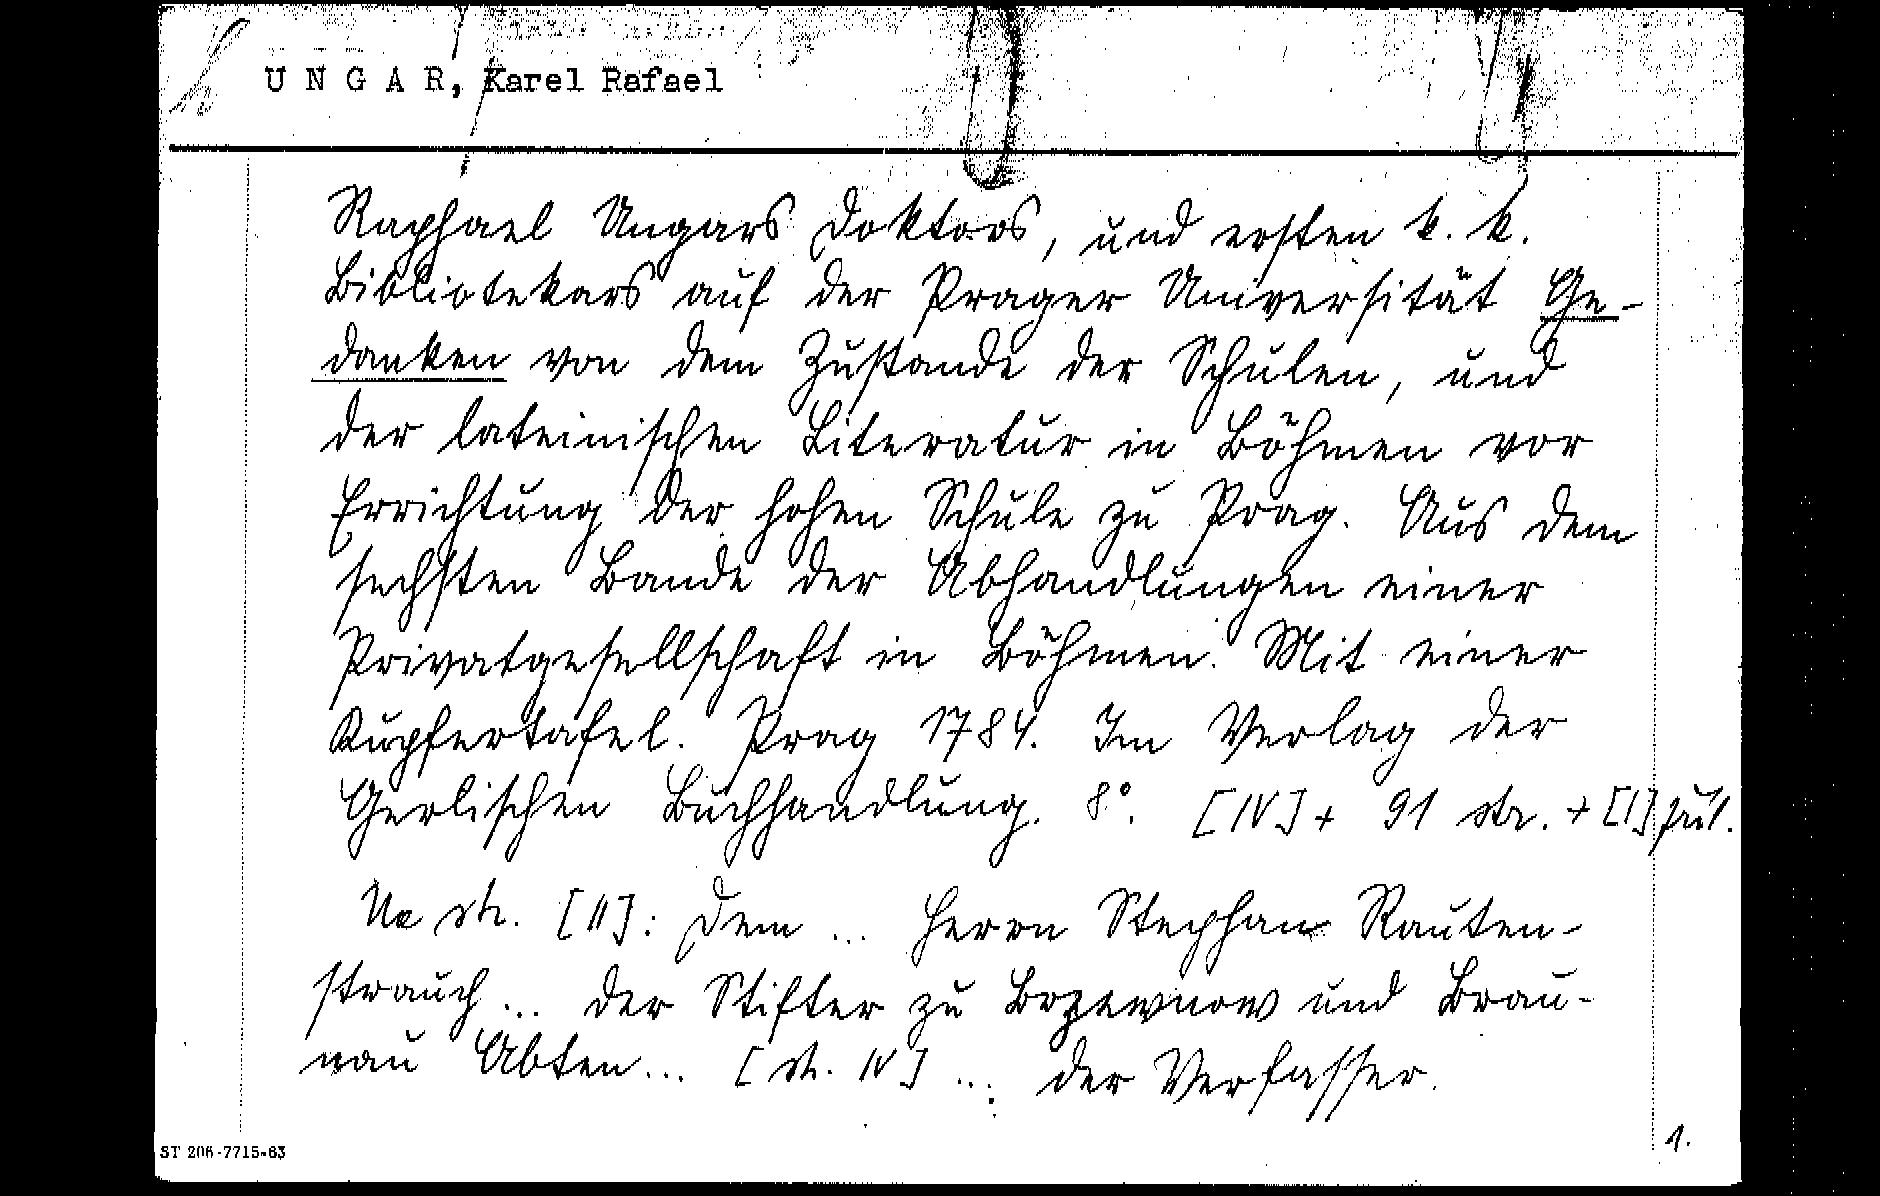 U N G A R, Karel Rafael
Raphael Ungars Doktors, und ersten k. k.
Bibliotekars auf der Prager Universität Ge-
danken von dem Zustande der Schulen, und
der lateinischen Literatur in Böhmen vor
Errichtung der hohen Schule zu Prag. Aus dem
sechsten Bande der Abhandlungen einer
Privatgesellschaft in Böhmen. Mit einer
Kupfertafel. Prag 1784. Im Verlag der
Gerlischen Buchhandlung. 8°. [IV] + 91 str. + [1] příl.
Na str. [II]: Dem ... Herrn Stephan Rauten-
strauch ... der Stifter zu Brzewnow und Brau-
nau Abten ... [str. IV] ... der Verfasser.
ST 206-7715-63
1.